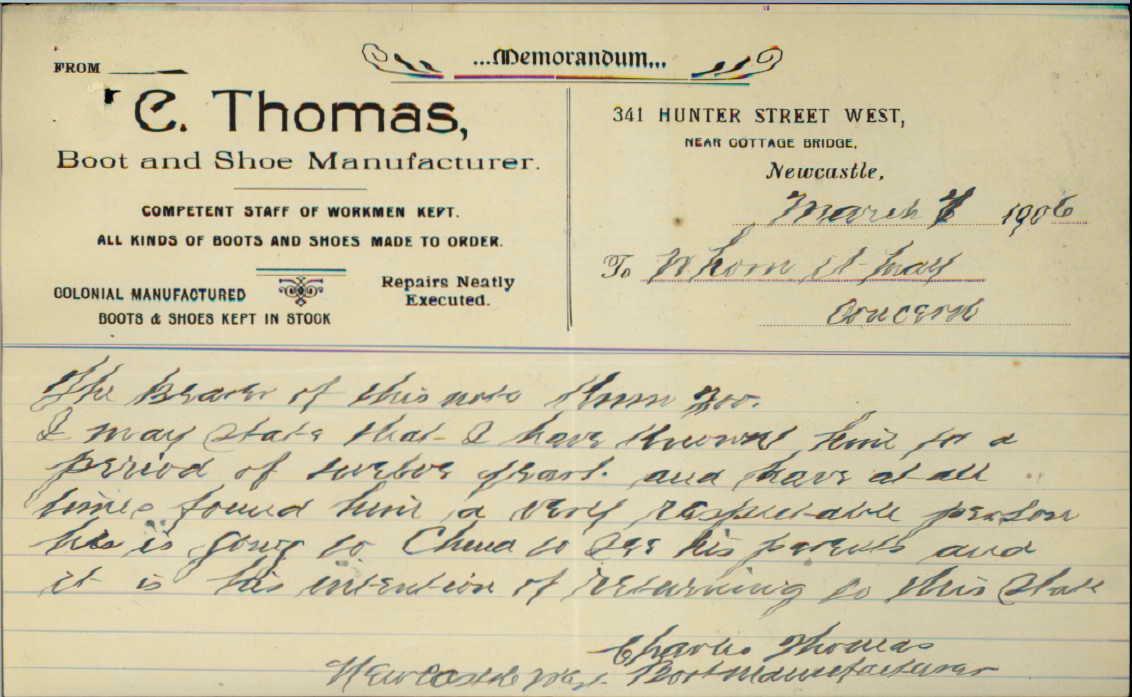 ...Memorandum...
FROM
C. Thomas,
Boot and Shoe Manufacturer.
COMPETENT STAFF OF WORKMEN KEPT.
ALL KINDS OF BOOTS AND SHOES MADE TO ORDER.
COLONIAL MANUFACTURED
BOOTS & SHOES KEPT IN STOCK
Repairs Neatly
Executed.
341 HUNTER STREET WEST,
NEAR COTTAGE BRIDGE,
Newcastle,
March 1906
To Whom it may
concern
The bearer of this note
I may state that I have known him for a
period of twelve years. and have at all
times found him a very respectable person
he is going to China to see his parents and
it is his intention of returning to this State
Charles Thomas
Newcastle West. Boot Manufacturer